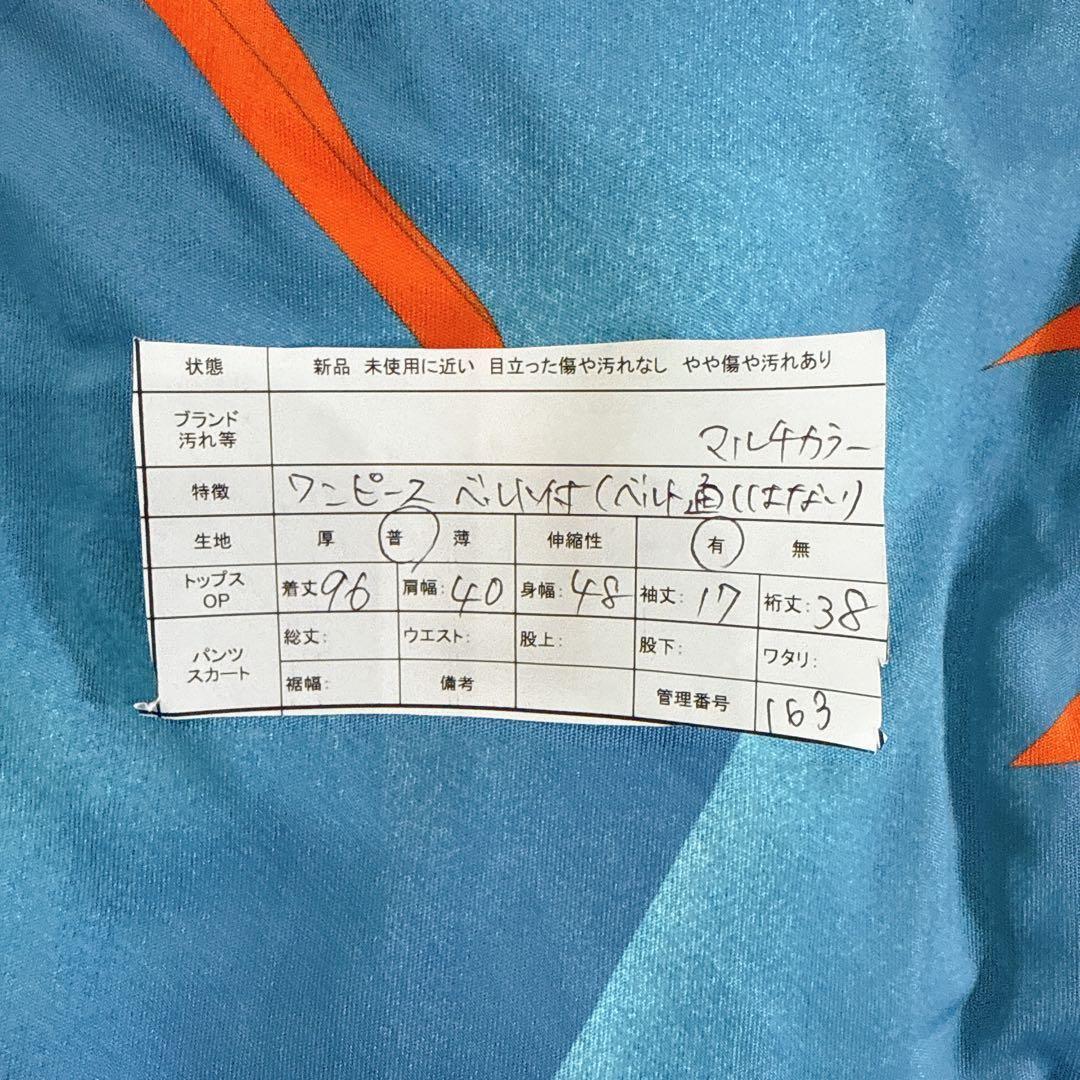 状態 新品 未使用に近い 目立った傷や汚れなし やや傷や汚れあり
ブランド
汚れ等 マルチカラー
特徴 ワンピース ベルト付(ベルト通しはない)
生地 厚 普 薄 伸縮性 有 無
トップス
OP 着丈96 肩幅:40 身幅:48 袖丈:17 裄丈:38
パンツ
スカート 総丈: ウエスト: 股上: 股下: ワタリ:
裾幅: 備考 管理番号 163